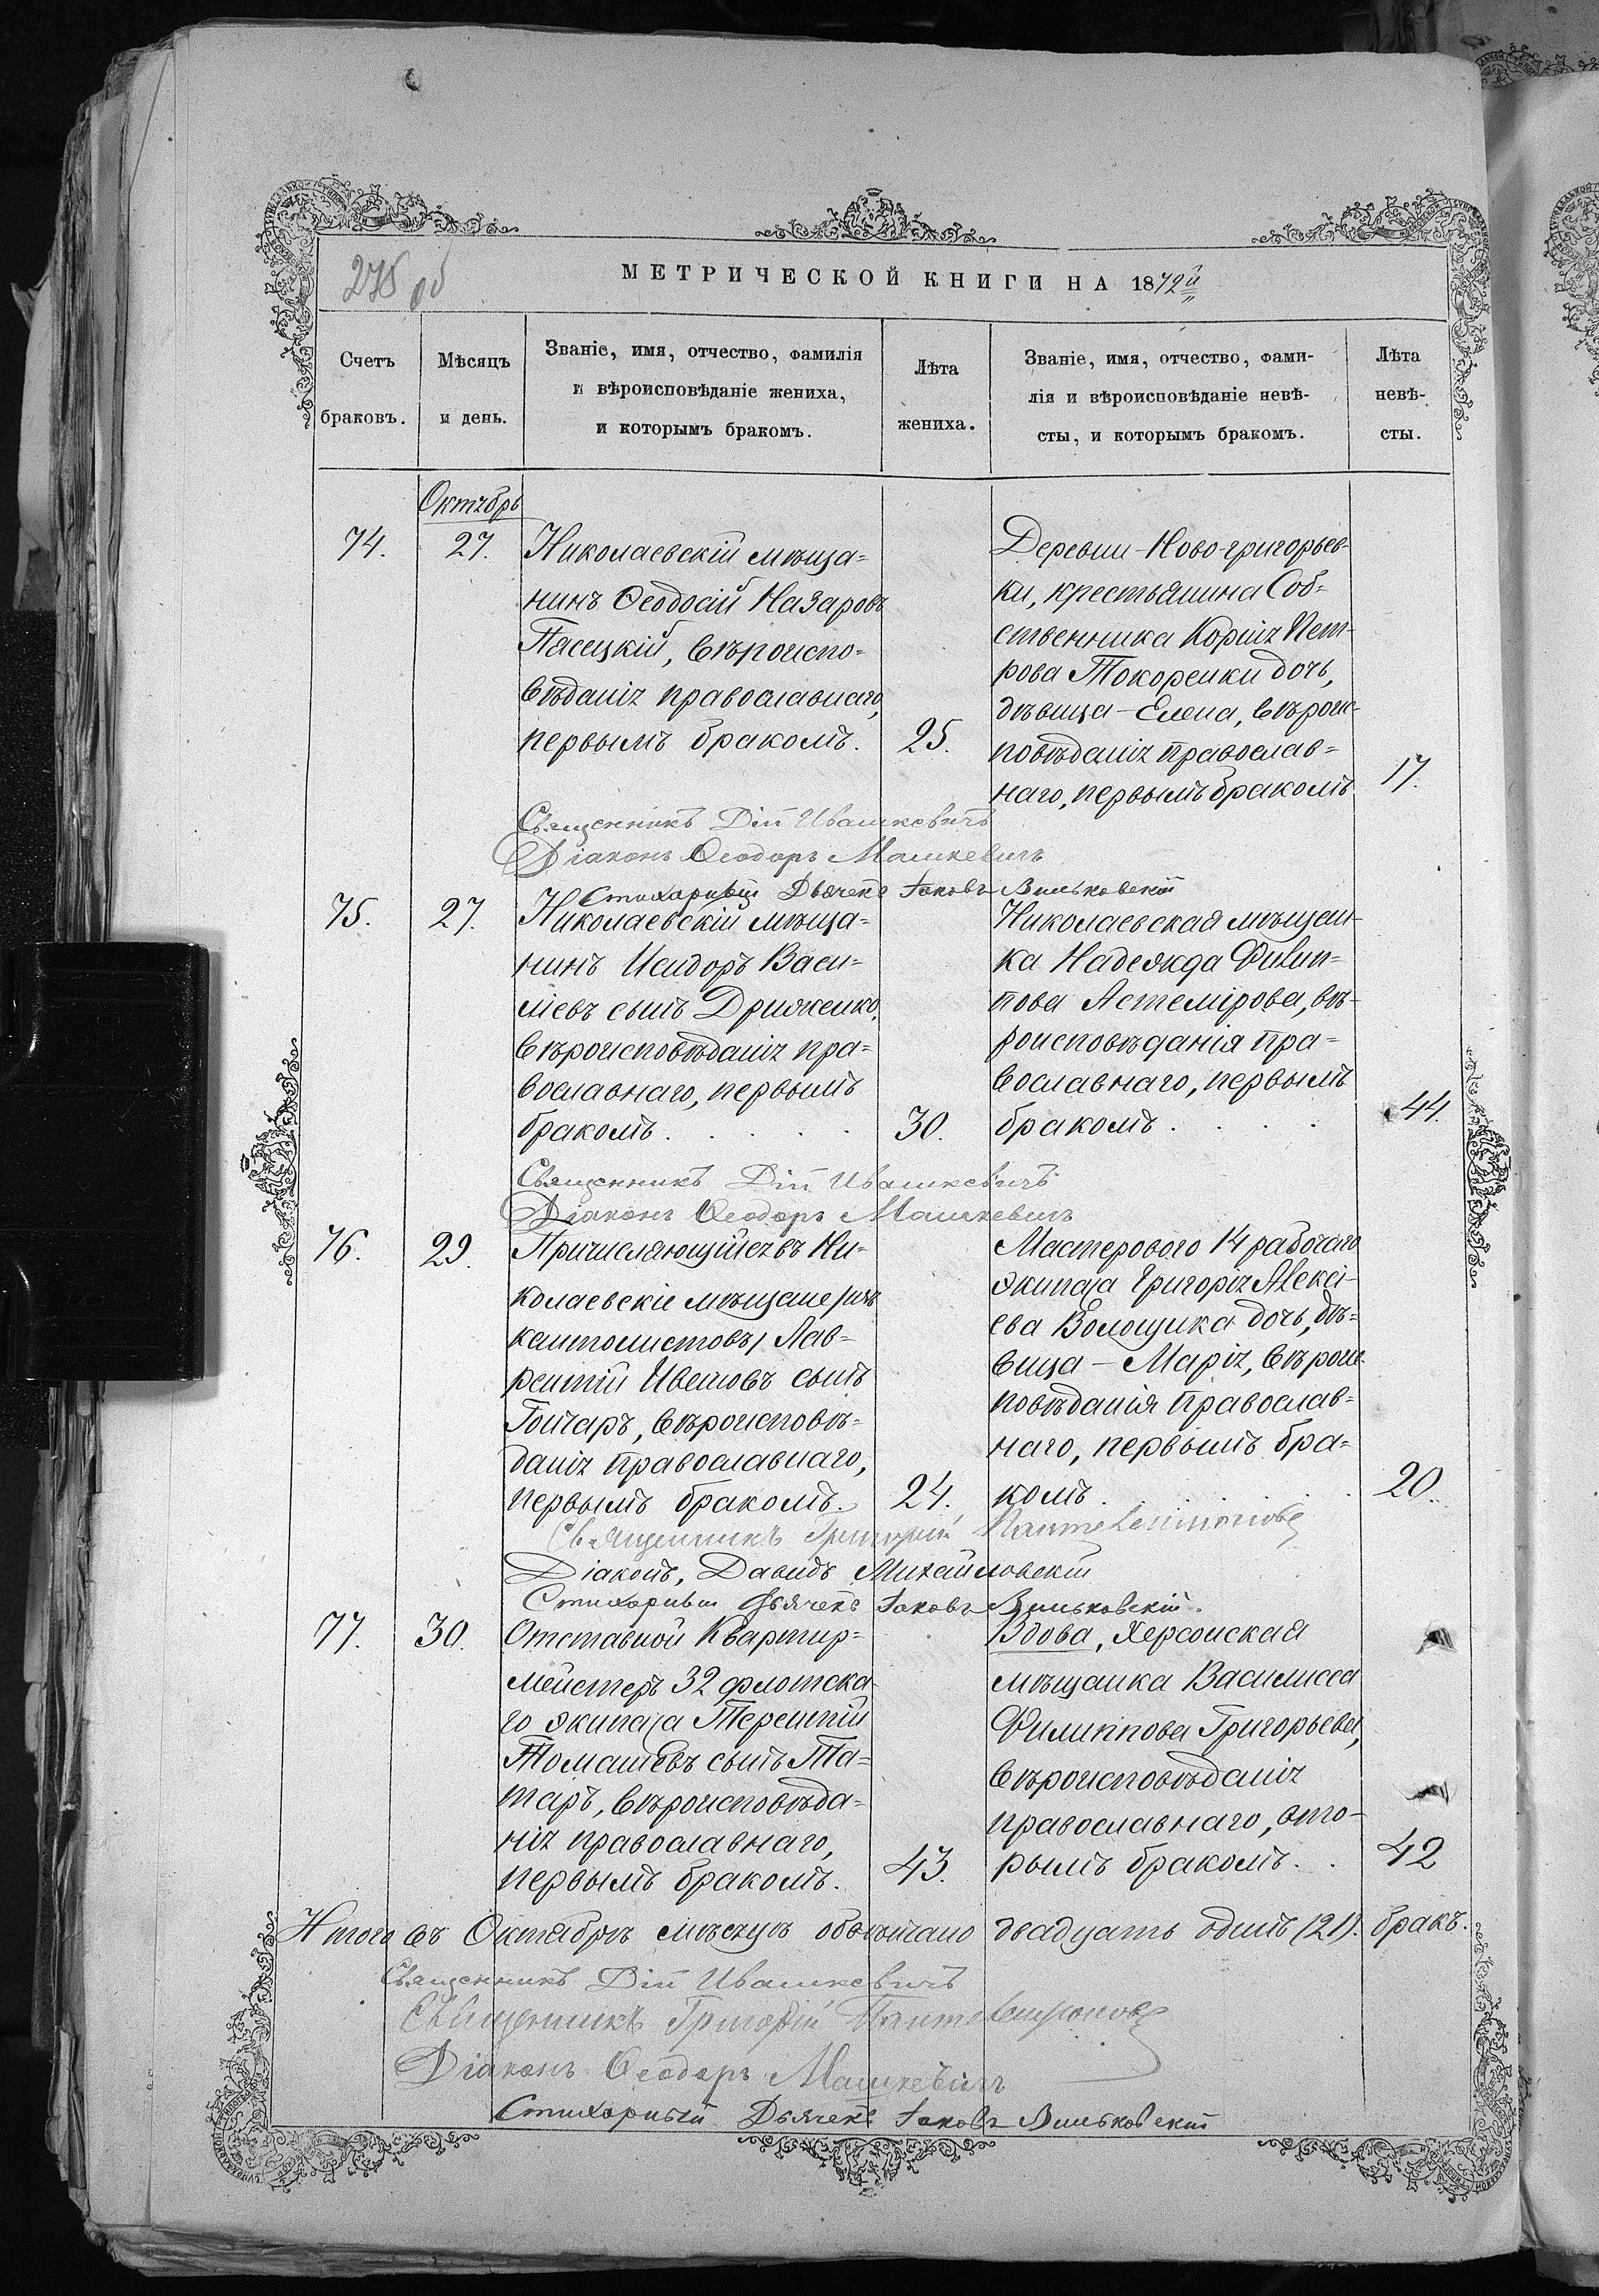 275 об
МЕТРИЧЕСКОЙ КНИГИ НА 1872й
Счетъ браковъ.
Мѣсяцъ и день.
Званіе, имя, отчество, фамилія
и вѣроисповѣданіе жениха,
и которымъ бракомъ.
Лѣта жениха.
Званіе, имя, отчество, фами-
лія и вѣроисповѣданіе невѣ-
сты, и которымъ бракомъ.
Лѣта невѣ-
сты.
Октябрь
74.
27.
Николаевскій мѣща-
нинъ Ѳеодосій Назаровъ
Пасецкій, вѣроиспо-
вѣданія православнаго,
первымъ бракомъ.
25.
Деревни Ново-григорьев-
ки, крестьянина Соб-
ственника Корнія Пет-
рова Токоренки дочь,
дѣвица - Елена, вѣроис-
повѣданія православ-
наго, первымъ бракомъ
17.
Священникъ Дій Ивашкевичъ
Діаконъ Ѳеодоръ Машкевичъ
Стихарный Дьячекъ Іаковъ Вильковскій
75.
27.
Николаевскій мѣща-
нинъ Исидоръ Васи-
ліевъ сынъ Дриженко,
вѣроисповѣданія пра-
вославнаго, первымъ
бракомъ.
30.
Николаевская мѣщан-
ка Надежда Филип-
пова Астемірова, вѣ-
роисповѣданія пра-
вославнаго, первымъ
бракомъ.
44.
Священникъ Дій Ивашкевичъ
Діаконъ Ѳеодоръ Машкевичъ
76.
29.
Причисляющійся въ Ни-
колаевскіе мѣщане /изъ
кантонистовъ/ Лав-
рентій Ивановъ сынъ
Гончаръ, вѣроисповѣ-
данія православнаго,
первымъ бракомъ.
24.
Мастероваго 14 рабочаго
экипажа Григорія Алексі-
ева Волощука дочь, дѣ-
вица - Марія, вѣроис-
повѣданія православ-
наго, первымъ бра-
комъ.
20.
Священникъ Григорій
Діаконъ, Давидъ Михайловскій
Стихарный Дьячекъ Іаковъ Вильковскій.
77.
30.
Отставной Квартир-
мейстеръ 32 флотска-
го экипажа Терентій
Томашевъ сынъ Та-
таръ, вѣроисповѣда-
нія православнаго,
первымъ бракомъ.
43.
Вдова, Херсонская
мѣщанка Василисса
Филиппова Григорьева,
вѣроисповѣданія
православнаго, вто-
рымъ бракомъ.
42
Итого въ Октябрѣ мѣсяцѣ обвѣнчано двадцать одинъ (21). бракъ.
Священникъ Дій Ивашкевичъ
Священникъ Григорій
Діаконъ Ѳеодоръ Машкевичъ
Стихарный Дьячекъ Іаковъ Вильковскій